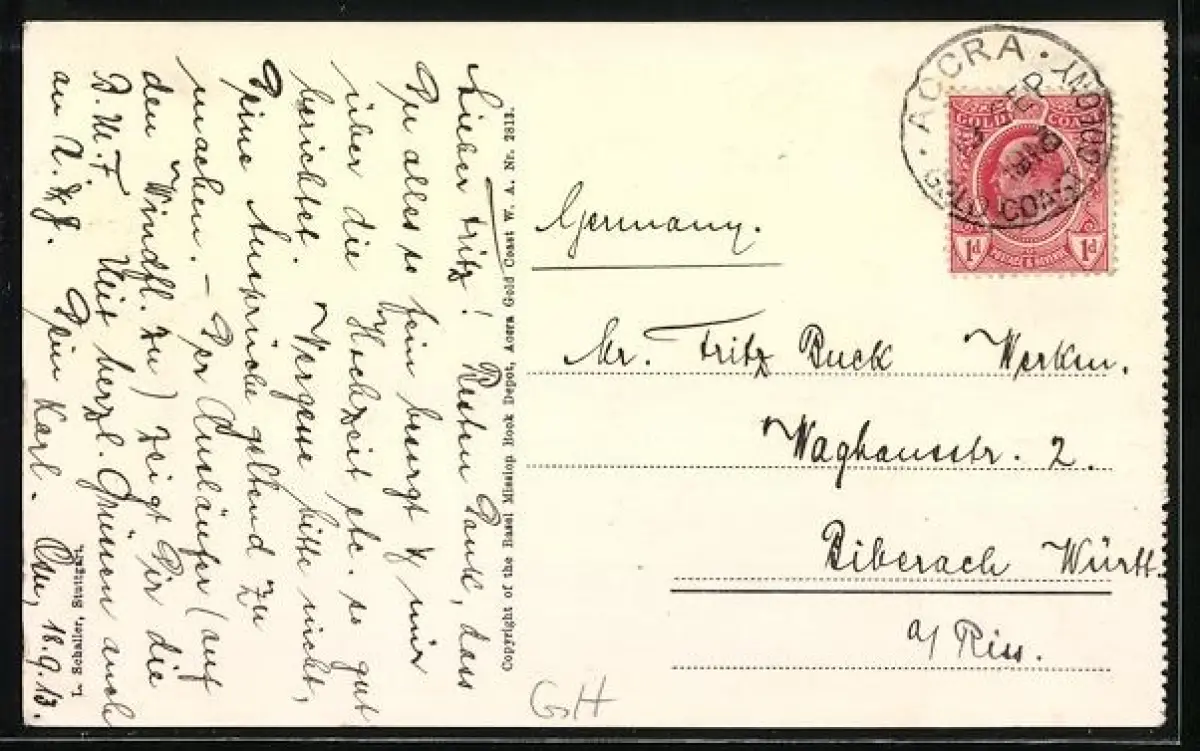 Lieber Fritz! Besten Dank, dass
Du alles so fein besorgt & mir
über die Hochzeit etc. so gut
berichtet. Vergesse bitte nicht,
Deine Ansprüche geltend zu
machen. – Der Ausläufer (auf
den Windfl. zu) zeigt Dir die
B.M.F. Mit herzl. Grüssen auch
an
Dein Karl.
18.9.13.
L. Schaller, Stuttgart.
Copyright of the Basel Mission Book Depot, Accra Gold Coast W. A. Nr. 2813.
ACCRA · GOLD COAST COLONY
GOLD COAST
POSTAGE & REVENUE
1d 1d
Germany.
Mr. Fritz Buck Werkm.
Waghausstr. 2.
Biberach Württ.
a/ Riss.
GH